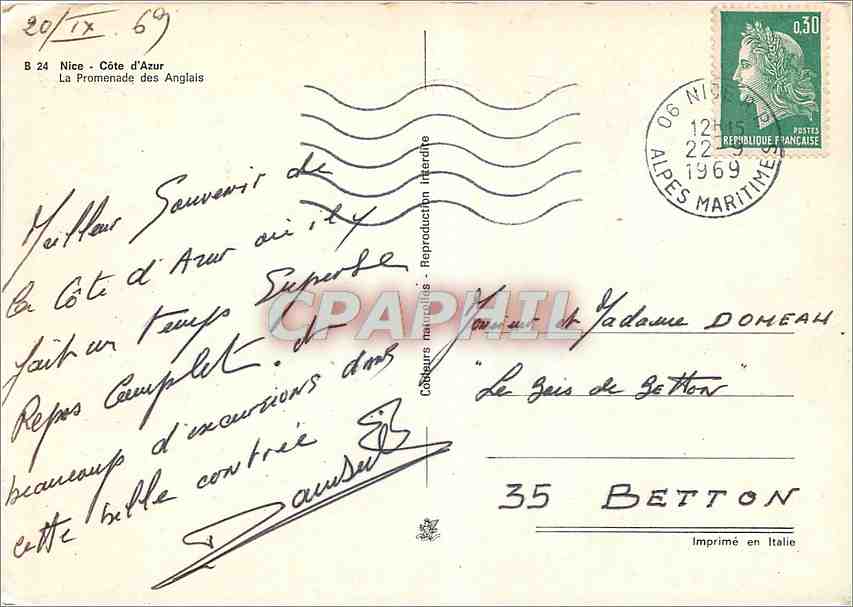 20/IX 69
B 24 Nice - Côte d'Azur
La Promenade des Anglais
0,30
POSTES
REPUBLIQUE FRANÇAISE
06 NICE R.P.
12H15
22-9
1969
ALPES MARITIMES
Meilleur Souvenir de
la Côte d'Azur où il y
fait un temps Superbe
Repos Complet. et
beaucoup d'excursions dans
cette belle contrée
Couleurs naturelles - Reproduction interdite
CPARPHIL
Monsieur et Madame DOMEAU
"Le Bois de Betton"
35 BETTON
Imprimé en Italie